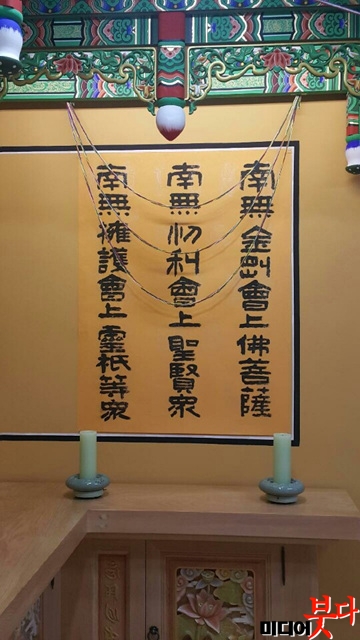 南無金剛會上佛菩薩
南無忉利會上聖賢衆
南無擁護會上靈祇等衆
미디어붓다